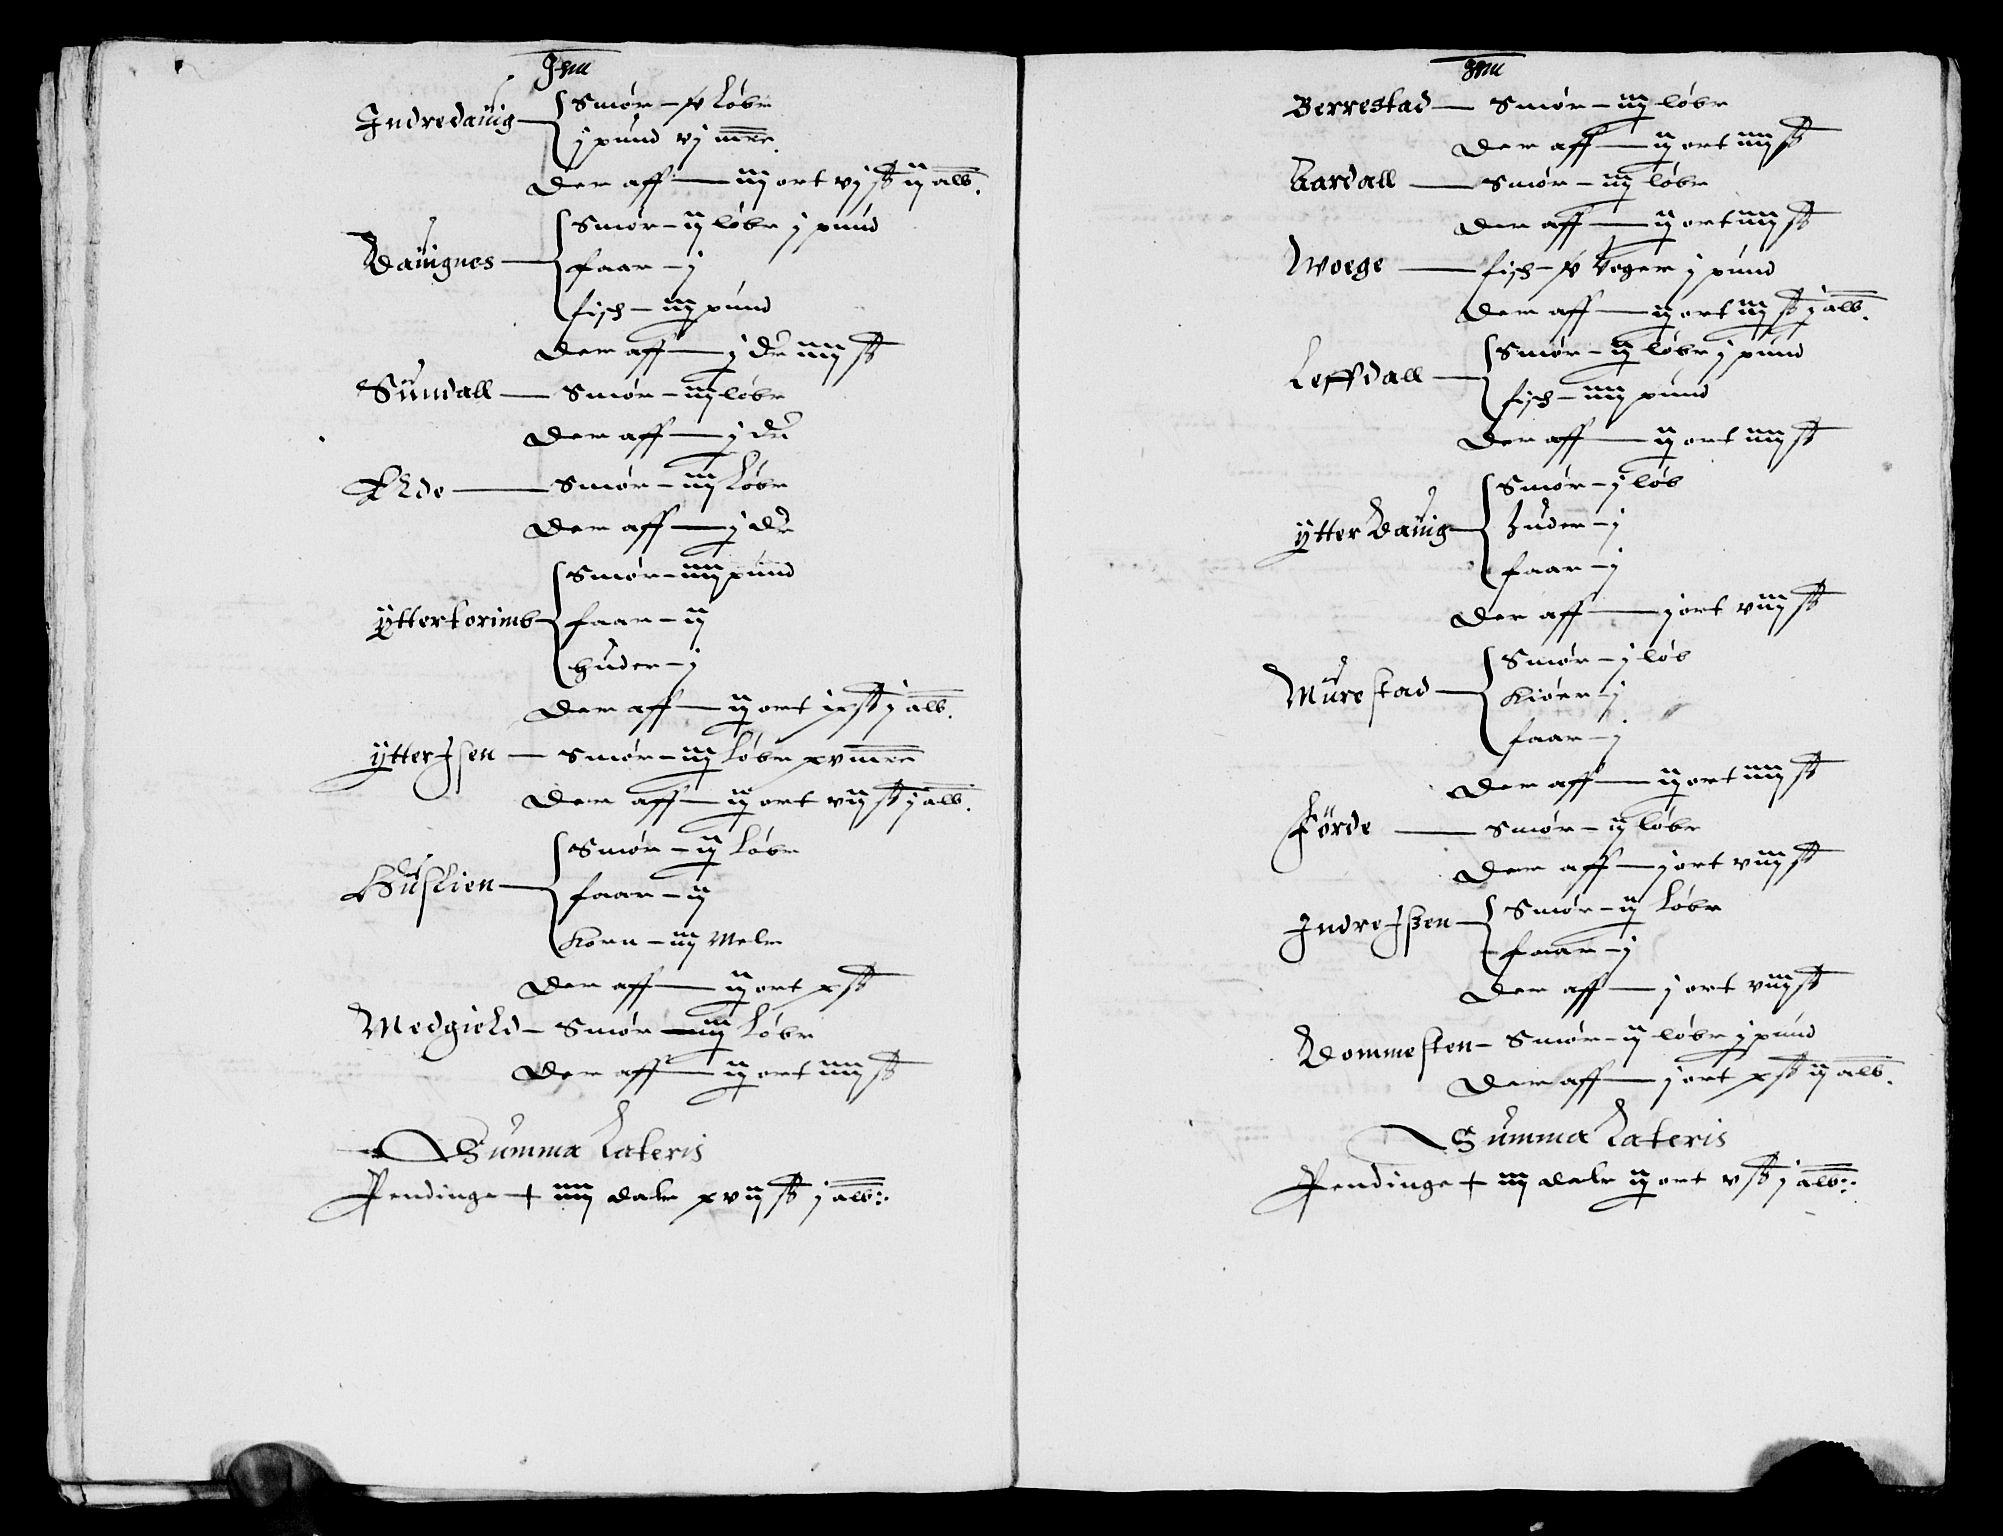 Indredauig — Smör — løbr
j pund vj mrc
Der aff — iij ort vj ß ij alb.
Dauignes — Smör — ij løbr j pund
faar — j
fisch — iij pund
Der aff — j dr iiij ß
Sundall — Smör — iij løbr
Der aff — j dr
Elde — Smör — iij Løbr
Der aff — j dr
Smör — iiij pund
faar — ij
Huder — j
Der aff — ij ort ix ß j alb.
Ytter Isen — Smör — iij Løbr xv mrc
Der aff — iij ort vij ß j alb.
Huslien — Smör — ij Løbr
faar — ij
Korn — iij Melr
Der aff — ij ort x ß
Medgield — Smör — iij Løbr
Der aff — ij ort iiij ß
Summa Lateris
Pendinge + iiij dalr xvij ß j alb:
Berrestad — Smör — iij løbr
Der aff — ij ort iiij ß
Aardall — Smör — iij løbr
Der aff — ij ort iiij ß
Woege — fisch — Woger j pund
Der aff — ij ort iij ß j alb.
Leffdall — Smör — ij løbr j pund
fisch — iiij pund
Der aff — ij ort iiij ß
Ytter Dauig — Smör — j løb
Huder — j
faar — j
Der aff — j ort viij ß
Murestad — Smör — j løb
Kiöer — j
faar — j
Der aff — ij ort iiij ß
Förde — Smör — ij løbr
Der aff — j ort viij ß
Indre Ißen — Smör — ij Løbr
faar — j
Der aff — j ort viij ß
Dommesten — Smör — ij løbr j pund
Der aff — j ort x ß ij alb.
Summa Lateris
Pendinge + iiij dalr ij ort v ß j alb: